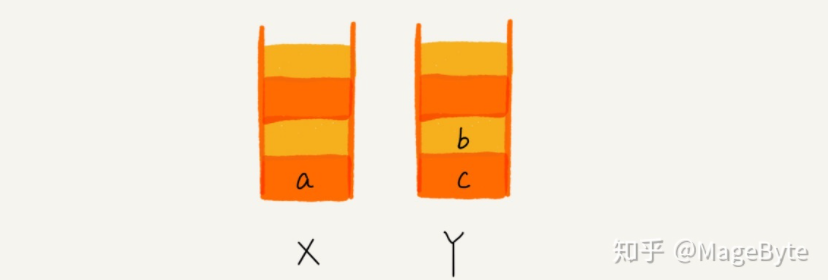 b
a c
X Y
知乎 @MageByte